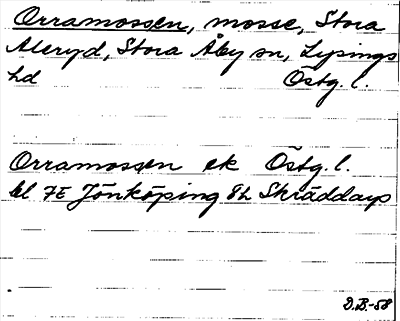 Orramossen, mosse, Stora
Åleryd, Stora Åby sn, Lysings
hd Östg. l.
Orramossen ek Östg. l.
bl 7E Jönköping 8h Skräddarp
D.B.-58